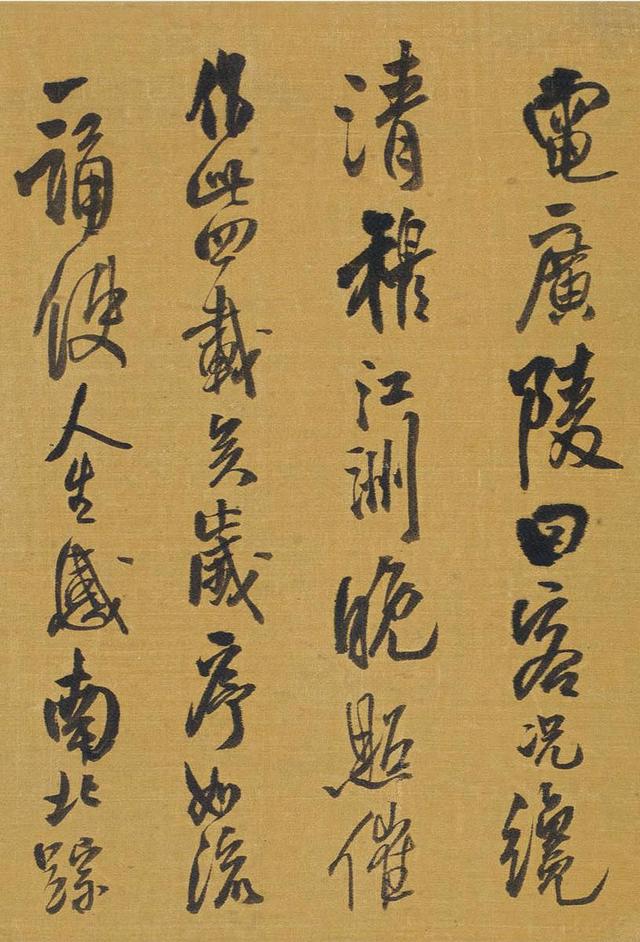 電廣陵曰客况纔
清穆江淵晚照催
作此四載矣歲序如流
一誦使人生感南北踪